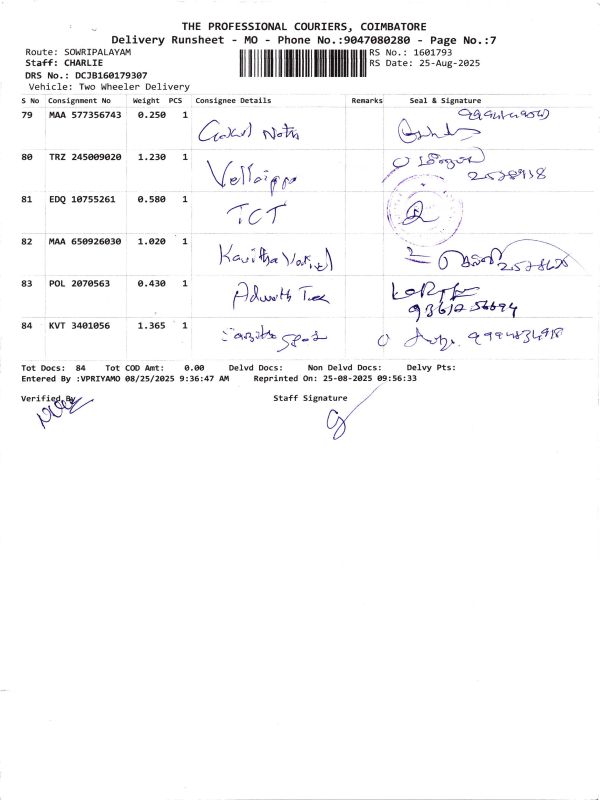 THE PROFESSIONAL COURIERS, COIMBATORE
Delivery Runsheet - MO - Phone No.:9047080280 - Page No.:7
Route: SOWRIPALAYAM
RS No.: 1601793
Staff: CHARLIE
RS Date: 25-Aug-2025
DRS No.: DCJB160179307
Vehicle: Two Wheeler Delivery
S No Consignment No Weight PCS Consignee Details Remarks Seal & Signature
79 MAA 577356743 0.250 1 Gokul Nath
80 TRZ 245009020 1.230 1 Vellaippa
81 EDQ 10755261 0.580 1 TCT
82 MAA 650926030 1.020 1 Kavitha
83 POL 2070563 0.430 1
84 KVT 3401056 1.365 1
Tot Docs: 84 Tot COD Amt: 0.00 Delvd Docs: Non Delvd Docs: Delvy Pts:
Entered By :VPRIYAMO 08/25/2025 9:36:47 AM Reprinted On: 25-08-2025 09:56:33
Verified By
Staff Signature